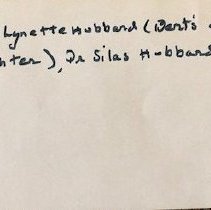 Lynette Hubbard (Bert's
ter), Dr Silas Hubbard